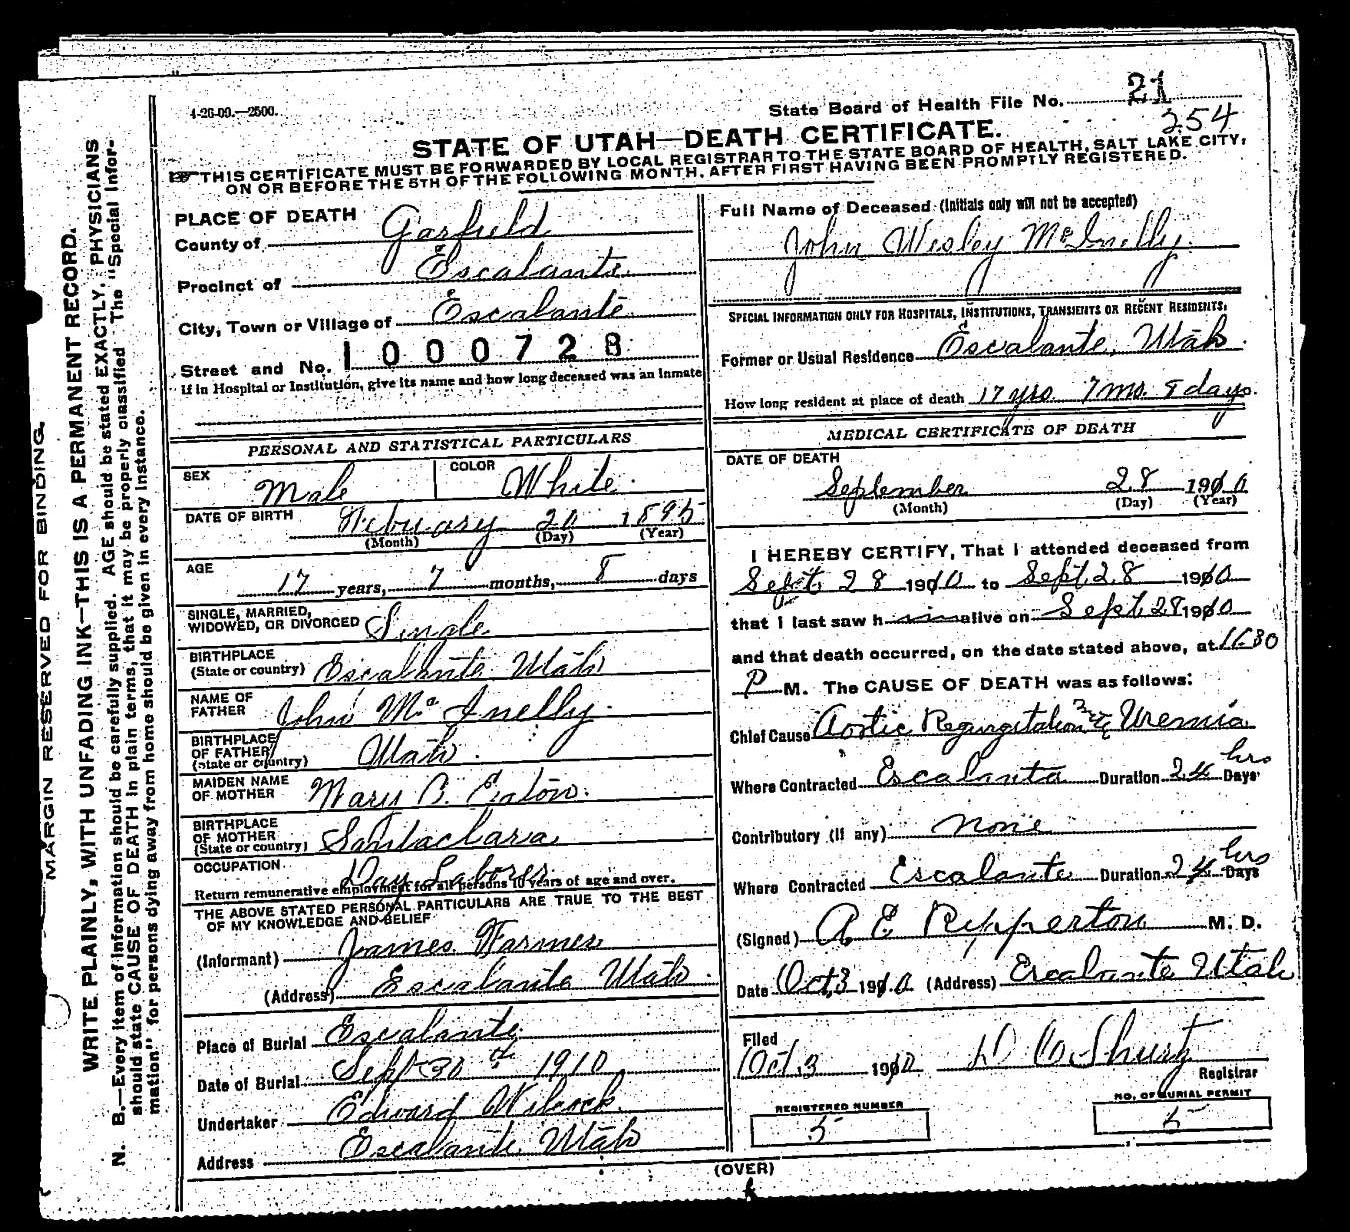 4-26-09.—2500.
State Board of Health File No. 21
254
STATE OF UTAH—DEATH CERTIFICATE.
THIS CERTIFICATE MUST BE FORWARDED BY LOCAL REGISTRAR TO THE STATE BOARD OF HEALTH, SALT LAKE CITY,
ON OR BEFORE THE 5TH OF THE FOLLOWING MONTH, AFTER FIRST HAVING BEEN PROMPTLY REGISTERED.
MARGIN RESERVED FOR BINDING.
WRITE PLAINLY, WITH UNFADING INK—THIS IS A PERMANENT RECORD.
N. B.—Every item of information should be carefully supplied. AGE should be stated EXACTLY. PHYSICIANS
should state CAUSE OF DEATH in plain terms, that it may be properly classified The "Special Infor-
mation" for persons dying away from home should be given in every instance.
PLACE OF DEATH
County of Garfield
Precinct of Escalante
City, Town or Village of Escalante
Street and No. 1000728
If in Hospital or Institution, give its name and how long deceased was an Inmate
PERSONAL AND STATISTICAL PARTICULARS
SEX Male COLOR White
DATE OF BIRTH February 20 1895
(Month) (Day) (Year)
AGE
17 years, 7 months, 8 days
SINGLE, MARRIED,
WIDOWED, OR DIVORCED Single
BIRTHPLACE
(State or country) Escalante Utah
NAME OF
FATHER John Mc Inelly.
BIRTHPLACE
OF FATHER
(State or country) Utah.
MAIDEN NAME
OF MOTHER Mary Eaton.
BIRTHPLACE
OF MOTHER
(State or country) Santaclara
OCCUPATION Day Laborer
Return remunerative employment for all persons 10 years of age and over.
THE ABOVE STATED PERSONAL PARTICULARS ARE TRUE TO THE BEST
OF MY KNOWLEDGE AND BELIEF
(Informant) James Farmer
(Address) Escalante Utah.
Place of Burial Escalante
Date of Burial Sept 30 th 1910
Undertaker Edward Wilcock
Address Escalante, Utah
Full Name of Deceased (Initials only will not be accepted)
John Wesley McInelly
SPECIAL INFORMATION ONLY FOR HOSPITALS, INSTITUTIONS, TRANSIENTS OR RECENT RESIDENTS.
Former or Usual Residence Escalante, Utah.
How long resident at place of death 17 yrs. 7 mo. 8 days.
MEDICAL CERTIFICATE OF DEATH
DATE OF DEATH
September 28 1910
(Month) (Day) (Year)
I HEREBY CERTIFY, That I attended deceased from
Sept 28 1910 to Sept 28 1910
that I last saw him alive on Sept 28 1910
and that death occurred, on the date stated above, at 11.30
P M. The CAUSE OF DEATH was as follows:
Chief Cause Aortic Regurgitation Uremia
Where Contracted Escalante Duration 24 hrs Days
Contributory (if any) None
Where Contracted Escalante Duration 24 hrs Days
(Signed) A. E. Ripperton M. D.
Date Oct 3 1910 (Address) Escalante Utah
Filed
Oct 3 1910 Shurtz
Registrar
REGISTERED NUMBER
5
NO. OF BURIAL PERMIT
5
(OVER)